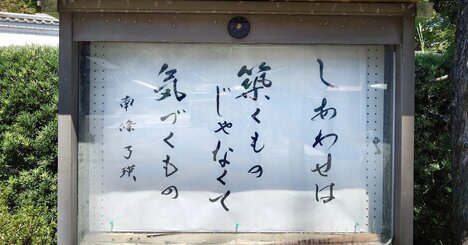 しあわせは
築くもの
じゃなくて
気づくもの
南條了瑛